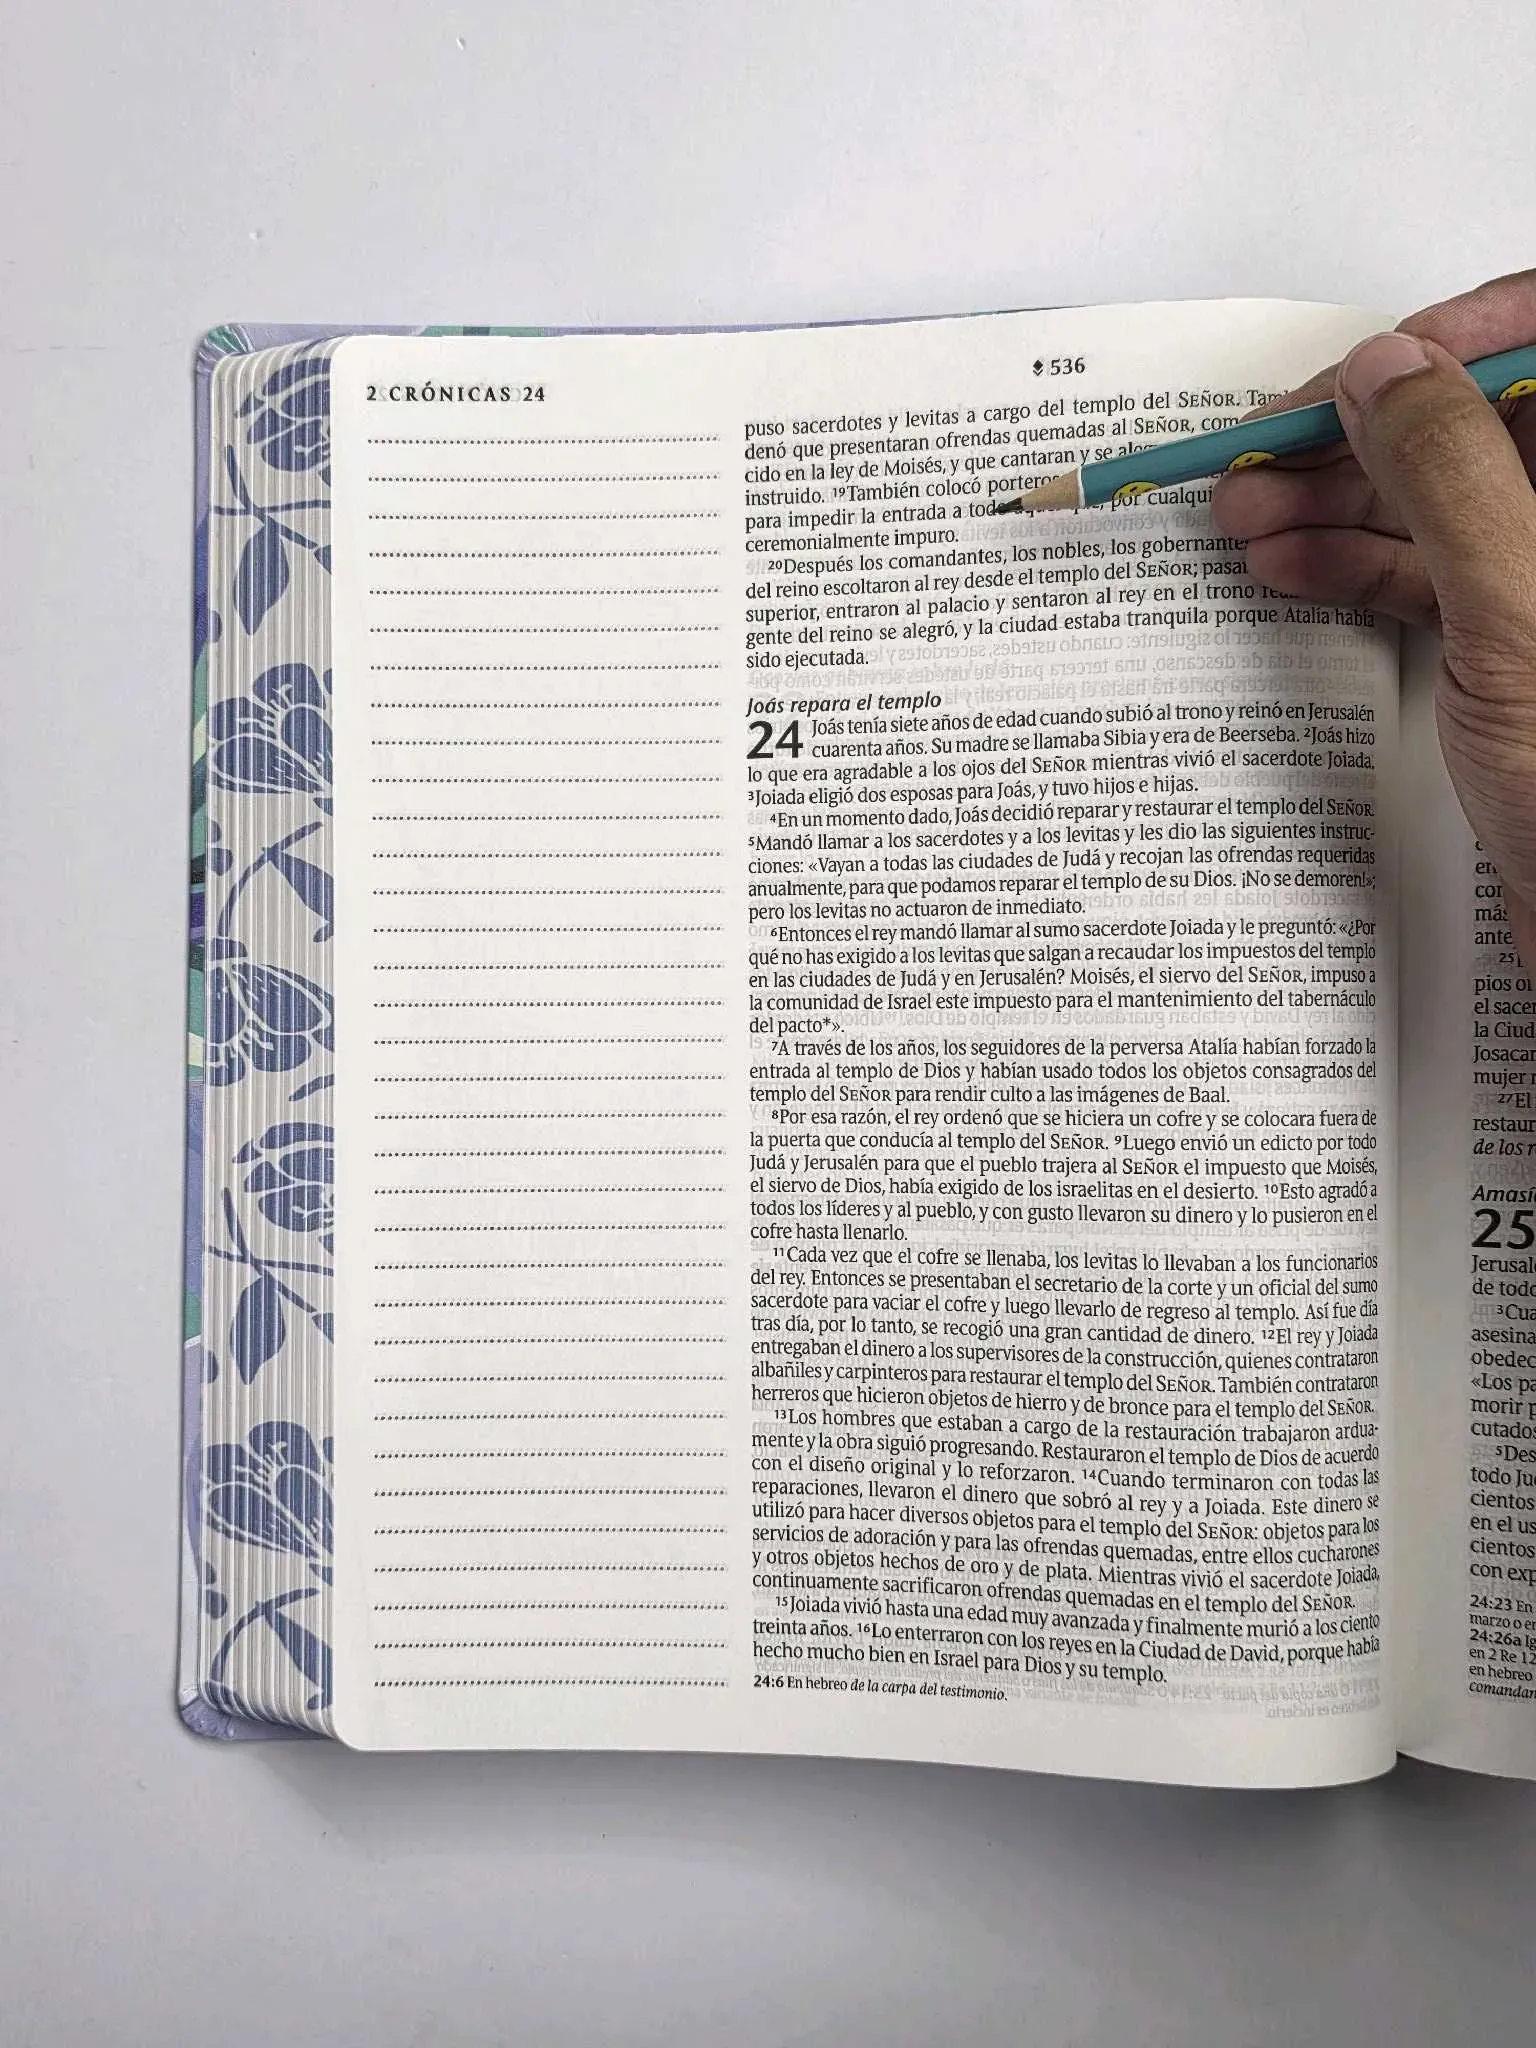 2 CRÓNICAS 24
536
puso sacerdotes y levitas a cargo del templo del SEÑOR.
denó que presentaran ofrendas quemadas al SEÑOR,
cido en la ley de Moisés, y que cantaran y se
instruido. 19También colocó
para impedir la entrada a por
ceremonialmente impuro.
20Después los comandantes, los nobles, los
del reino escoltaron al rey desde el templo del SEÑOR;
superior, entraron al palacio y sentaron al rey en el trono
gente del reino se alegró, y la ciudad estaba tranquila porque Atalía había
sido ejecutada.
Joás repara el templo
24 Joás tenía siete años de edad cuando subió al trono y reinó en Jerusalén
cuarenta años. Su madre se llamaba Sibia y era de Beerseba. 2Joás hizo
lo que era agradable a los ojos del SEÑOR mientras vivió el sacerdote Joiada.
3Joiada eligió dos esposas para Joás, y tuvo hijos e hijas.
4En un momento dado, Joás decidió reparar y restaurar el templo del SEÑOR.
5Mandó llamar a los sacerdotes y a los levitas y les dio las siguientes instruc-
ciones: «Vayan a todas las ciudades de Judá y recojan las ofrendas requeridas
anualmente, para que podamos reparar el templo de su Dios. ¡No se demoren!»;
pero los levitas no actuaron de inmediato.
6Entonces el rey mandó llamar al sumo sacerdote Joiada y le preguntó: «¿Por
qué no has exigido a los levitas que salgan a recaudar los impuestos del templo
en las ciudades de Judá y en Jerusalén? Moisés, el siervo del SEÑOR, impuso a
la comunidad de Israel este impuesto para el mantenimiento del tabernáculo
del pacto*».
7A través de los años, los seguidores de la perversa Atalía habían forzado la
entrada al templo de Dios y habían usado todos los objetos consagrados del
templo del SEÑOR para rendir culto a las imágenes de Baal.
8Por esa razón, el rey ordenó que se hiciera un cofre y se colocara fuera de
la puerta que conducía al templo del SEÑOR. 9Luego envió un edicto por todo
Judá y Jerusalén para que el pueblo trajera al SEÑOR el impuesto que Moisés,
el siervo de Dios, había exigido de los israelitas en el desierto. 10Esto agradó a
todos los líderes y al pueblo, y con gusto llevaron su dinero y lo pusieron en el
cofre hasta llenarlo.
11Cada vez que el cofre se llenaba, los levitas lo llevaban a los funcionarios
del rey. Entonces se presentaban el secretario de la corte y un oficial del sumo
sacerdote para vaciar el cofre y luego llevarlo de regreso al templo. Así fue día
tras día, por lo tanto, se recogió una gran cantidad de dinero. 12El rey y Joiada
entregaban el dinero a los supervisores de la construcción, quienes contrataron
albañiles y carpinteros para restaurar el templo del SEÑOR. También contrataron
herreros que hicieron objetos de hierro y de bronce para el templo del SEÑOR.
13Los hombres que estaban a cargo de la restauración trabajaron ardua-
mente y la obra siguió progresando. Restauraron el templo de Dios de acuerdo
con el diseño original y lo reforzaron. 14Cuando terminaron con todas las
reparaciones, llevaron el dinero que sobró al rey y a Joiada. Este dinero se
utilizó para hacer diversos objetos para el templo del SEÑOR: objetos para los
servicios de adoración y para las ofrendas quemadas, entre ellos cucharones
y otros objetos hechos de oro y de plata. Mientras vivió el sacerdote Joiada,
continuamente sacrificaron ofrendas quemadas en el templo del SEÑOR.
15Joiada vivió hasta una edad muy avanzada y finalmente murió a los ciento
treinta años. 16Lo enterraron con los reyes en la Ciudad de David, porque había
hecho mucho bien en Israel para Dios y su templo.
24:6 En hebreo de la carpa del testimonio.
pios
la
mujer
27El
25
de
3
«Los
morir
5
en el
con
24:23 En
marzo o
24:26a
en 2 Re 12
en hebreo